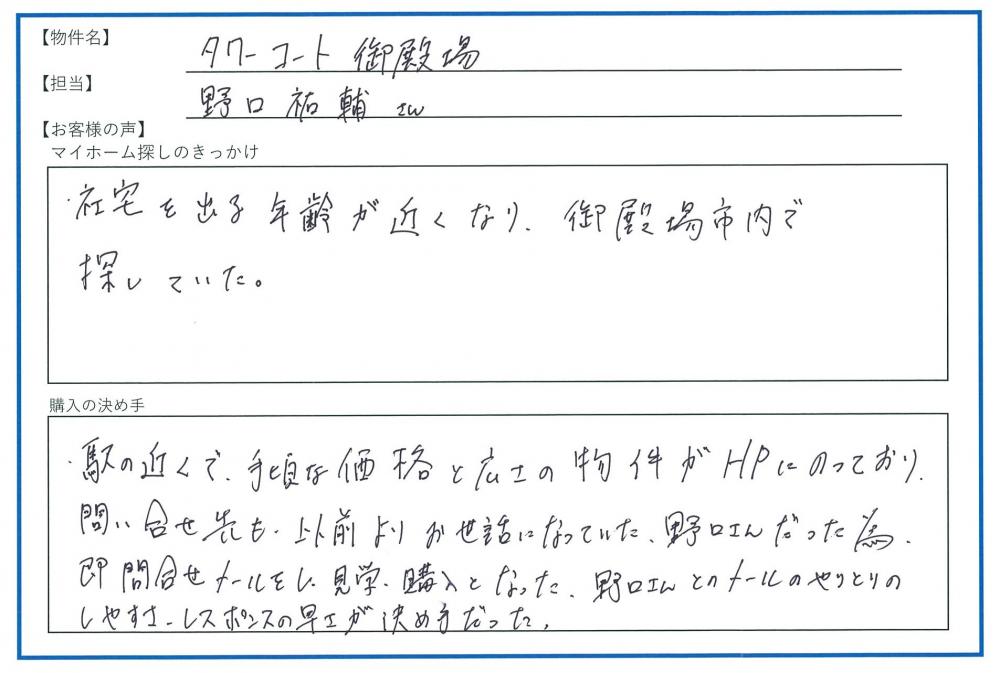 【物件名】 タワーコート 御殿場
【担当】 野口 祐輔 さん
【お客様の声】
マイホーム探しのきっかけ
・社宅を出る年齢が近くなり、御殿場市内で
探していた。
購入の決め手
・駅の近くで、手頃な価格と広さの物件がHPにのっており、
問い合せ先も、以前よりお世話になっていた、野口さんだった為、
即問合せメールをし、見学、購入となった。野口さんとのメールのやりとりの
しやすさ、レスポンスの早さが決め手だった。